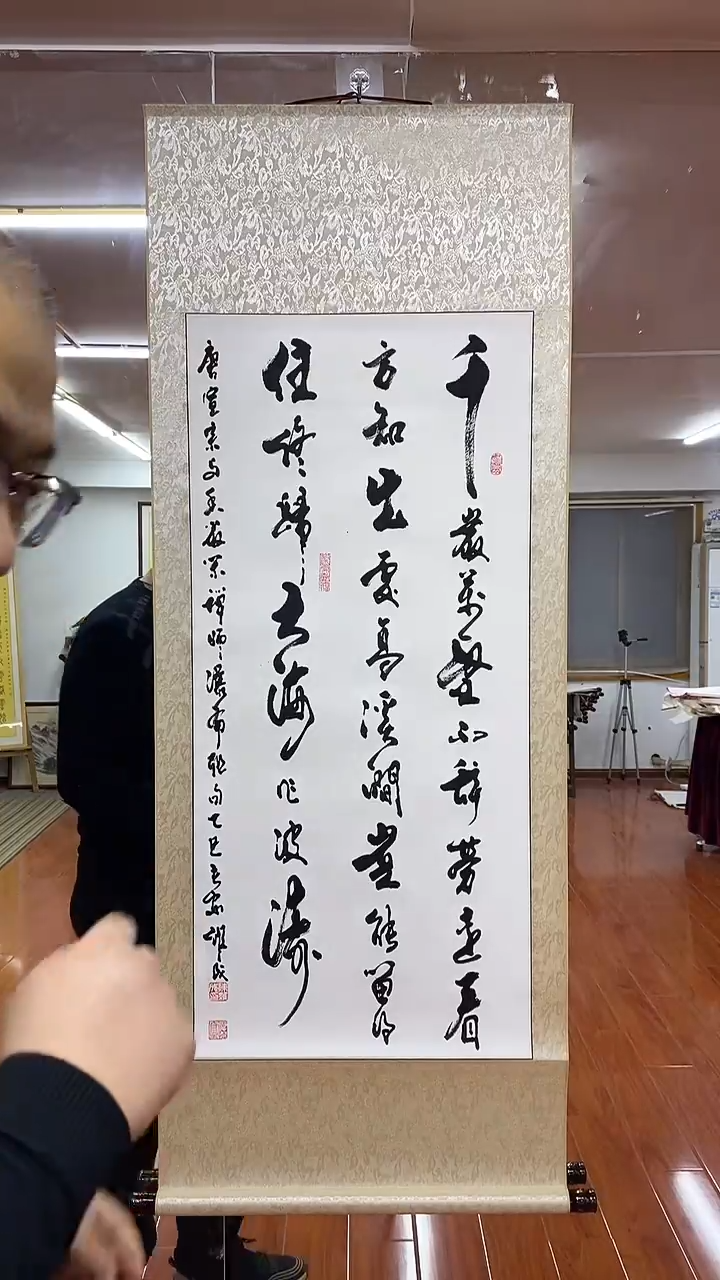 千巖萬壑不辞勞遠看
方知出處高溪澗豈能留得
住終歸大海作波濤
唐宣宗与香嚴閑禪師瀑布聯句乙巳